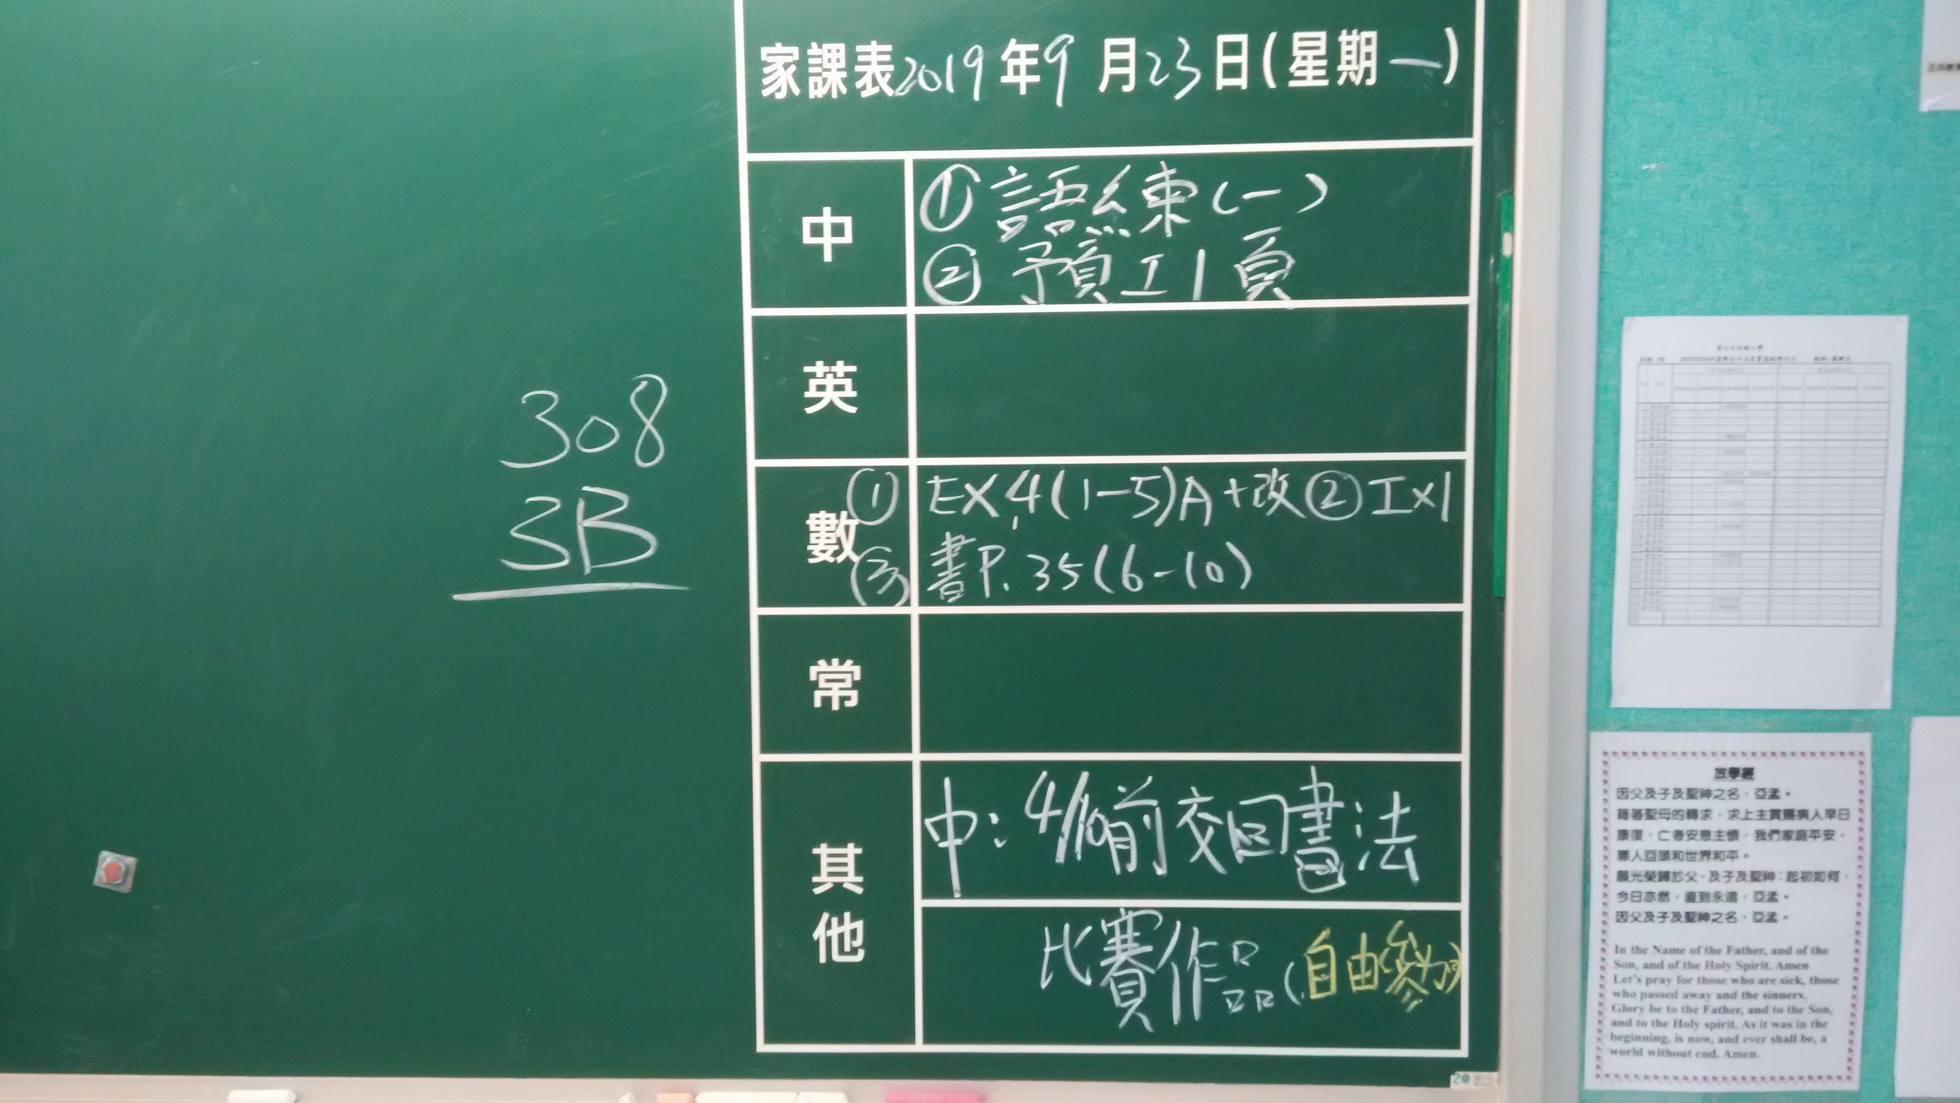 家課表2019年9月23日(星期一)
中
① 語練(一)
② 預工1頁
英
308
3B
數
① EX.4(1-5)A+改 ② 工x1
③ 書P.35(6-10)
常
其他
中: 4/10前交回書法
比賽作品(自由參加)
放學經
因父及子及聖神之名,亞孟。
藉著聖母的轉求,求上主賞賜病人早日
康復,亡者安息主懷,我們家庭平安,
罪人回頭和世界和平。
願光榮歸於父、及子及聖神;起初如何,
今日亦然,直到永遠,亞孟。
因父及子及聖神之名,亞孟。
In the Name of the Father, and of the
Son, and of the Holy Spirit. Amen
Let's pray for those who are sick, those
who passed away and the sinners.
Glory be to the Father, and to the Son,
and to the Holy spirit. As it was in the
beginning, is now, and ever shall be, a
world without end. Amen.